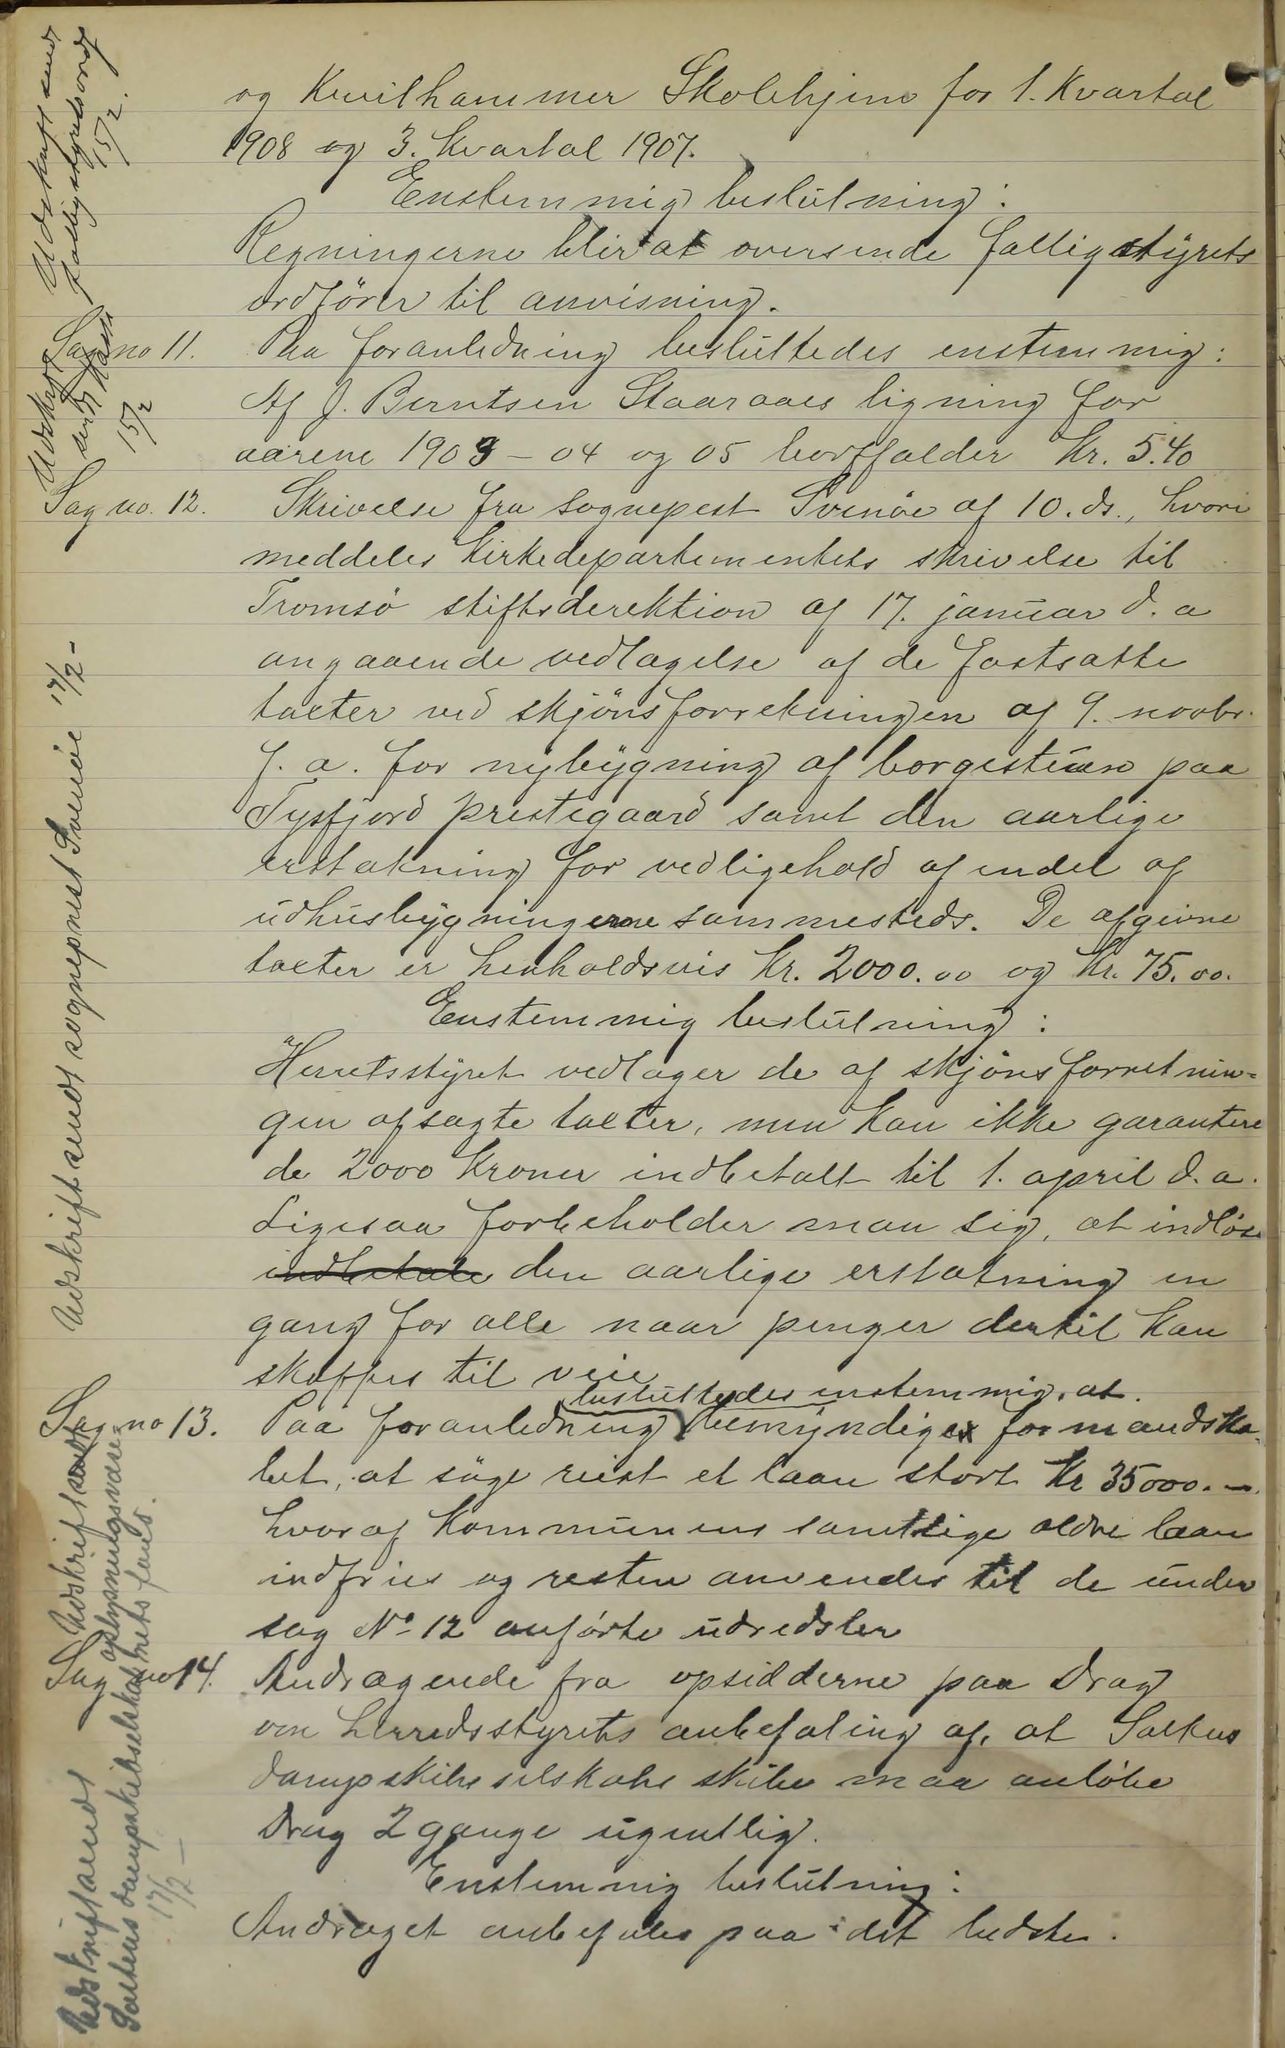 og Kvilhammer Skolehjem for 1. Kvartal
1908 og 3. kvartal 1907.
Enstemmig beslutning:
Regningerne blir at oversende fattigstyrets
ordfører til anvisning.
Sag no 11. Paa foranledning besluttedes enstemmig:
Af J. Berntsen Staaraaes ligning for
aarene 1903 - 04 og 05 bortfalder Kr. 5.40
Sag no. 12. Skrivelse fra sognepest Svenöe af 10. ds., hvori
meddeles Kirkedepartementets skrivelse til
Tromsö stiftsderektion af 17. januar d. a
angaaende vedtagelse af de fastsatte
takter ved skjönsforretningen af 9. novbr.
f. a. for nybygning af borgestuen paa
Tysfjord prestegaard samt den aarlige
erstatning for vedligehold af endel af
udhusbygningerne sammesteds. De afgivne
takter er henholdsvis Kr. 2000.00 og Kr. 75.00.
Enstemmig beslutning:
Herretsstyret vedtager de af skjönsforretnin=
gen afsagte takter, men kan ikke garantere
de 2000 Kroner indbetalt til 1. april d. a.
Ligesaa forbeholder man sig, at indlöse
indbetale den aarlige erstatning en
gang for alle naar penger dertil kan
skaffes til veie
besluttedes enstemmig, at
Sag no 13. Paa foranledning bemyndiges formandska-
bet, at söge reist et laan stort Kr 35000.—
hvoraf Kommunens samtlige ældre laan
indfries og resten anvendes til de under
sag No 12 anförte udredsler
Sag no 14. Andragende fra opsidderne paa Drag
om herredsstyrets anbefaling af, at Saltens
dampskibsselskabs skibe maa anlöbe
Drag 2 gange ugentlig.
Enstemmig beslutning:
Andraget anbefales paa det bedste.
Udskrift sendt
fattigstyrets ordf
15/2.
Udskrift
sendt Kass
15/2
Udskrift sendt sogneprest Svenöe 17/2 -
Udskrift sendt
oplysningsvæse-
nets fond.
Udskrift sendt
Saltens Dampskibsselskab
17/2 -